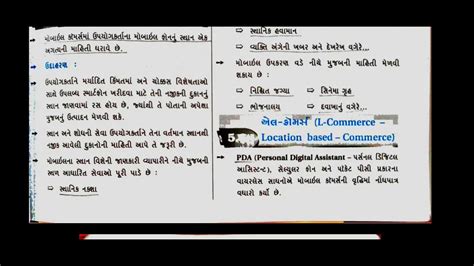 મોબાઇલ કૉમર્સમાં ઉપયોગકર્તાના મોબાઇલ ફોનનું સ્થાન એક
અગત્યની માહિતી ધરાવે છે.
ઉદાહરણ :
ઉપયોગકર્તાને મર્યાદિત કિંમતમાં અને ચોક્કસ વિશેષતાઓ
સાથે ઉપલબ્ધ સ્માર્ટફોન ખરીદવા માટે તેની નજીકની દુકાનનું
સ્થાન જાણવામાં રસ હોય છે, જ્યાંથી તે પોતાની અપેક્ષા
મુજબનું ઉત્પાદન મેળવી શકે.
સ્થાન અને શોધની સેવા ઉપયોગકર્તાને તેના વર્તમાન સ્થાનથી
નજીક આવેલી દુકાનોની માહિતી આપે તે જરૂરી છે.
મોબાઇલના સ્થાન વિશેની જાણકારી વ્યાપારીને નીચે મુજબની
સ્થળ આધારિત સેવાઓ પૂરી પાડે છે :
સ્થાનિક નકશા
સ્થાનિક હવામાન
વ્યક્તિ અંગેની ખબર અને દેખરેખ વગેરે...
મોબાઇલ ઉપકરણ વડે નીચે મુજબની માહિતી મેળવી
શકાય છે :
નિશ્ચિત જગ્યા સિનેમા ગૃહ
ભોજનાલય દવાખાનું વગેરે...
5. એલ-કૉમર્સ (L-Commerce –
Location based – Commerce)
PDA (Personal Digital Assistant – પર્સનલ ડિજિટલ
આસિસ્ટન્ટ), સેલ્યુલર ફોન અને પૉકેટ પીસી પ્રકારના
વાયરલેસ સાધનોએ મોબાઇલ કૉમર્સની વૃદ્ધિમાં નોંધપાત્ર
વધારો કર્યો છે.